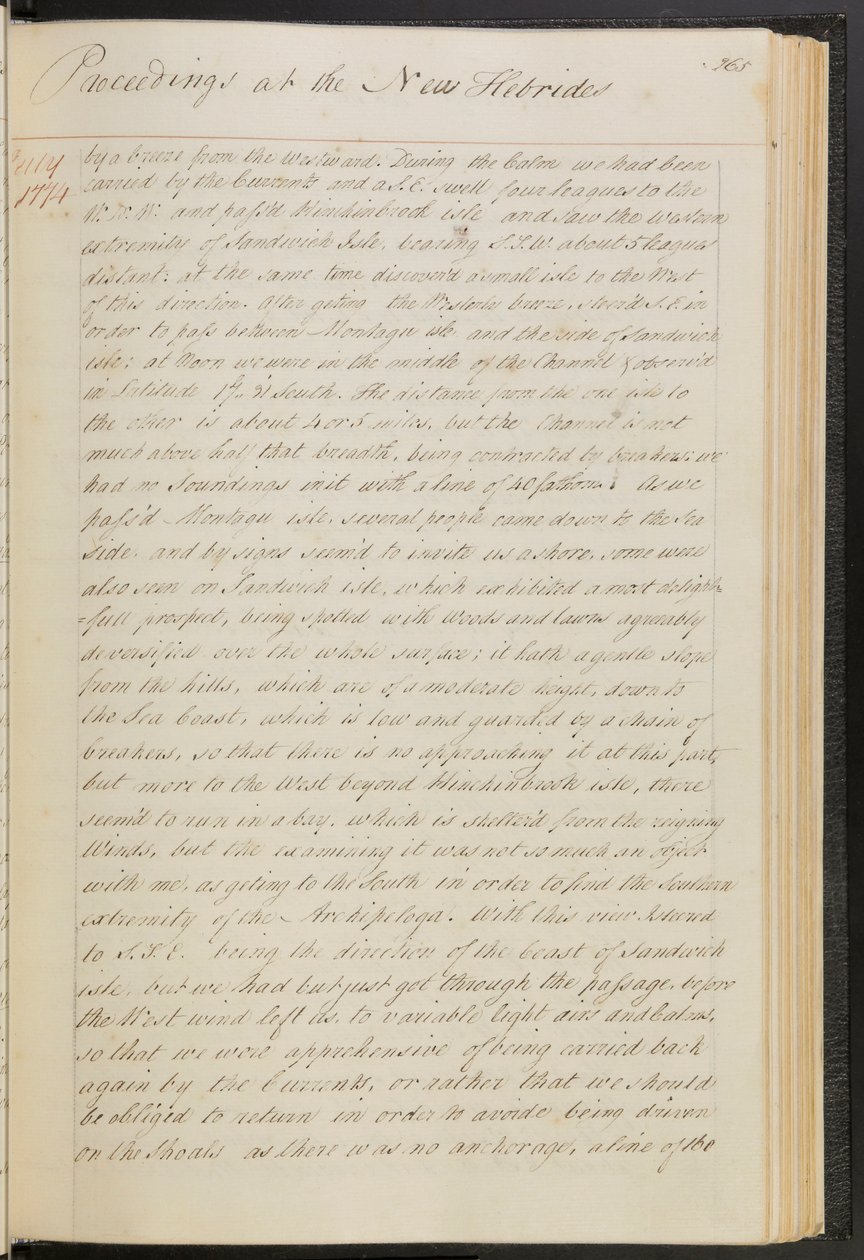 265
Proceedings at the New Hebrides
July
1774
by a breeze from the Westward. During the Calm we had been
carried by the Currents and a S.E. swell four leagues to the
W.N.W. and pass'd Hinchinbrook isle and saw the western
extremity of Sandwich Isle, bearing S.S.W. about 5 leagues
distant: at the same time discover'd a small isle to the West
of this direction. After geting the Westerly breeze, steer'd S.E. in
order to pass between Montagu isle and the side of Sandwich
isle; at Noon we were in the middle of the Channel & observ'd
in Latitude 17.. 31 South. The distance from the one isle to
the other is about 4 or 5 miles, but the Channel is not
much above half that breadth, being contracted by breakers: we
had no Soundings in it with a line of 40 fathoms. As we
pass'd Montagu isle, several people came down to the Sea
side, and by signs seem'd to invite us ashore, some were
also seen on Sandwich isle, which exhibited a most delight=
=full prospect, being spotted with woods and lawns agreeably
deversified over the whole surface; it hath a gentle slope
from the hills, which are of a moderate height, down to
the Sea Coast, which is low and guarded by a chain of
breakers, so that there is no approaching it at this part,
but more to the West beyond Hinchinbrook isle, there
seem'd to run in a bay, which is shelter'd from the reigning
Winds, but the examining it was not so much an object
with me, as geting to the South in order to find the Southern
extremity of the Archipeloga. With this view I steered
to S.S.E. being the direction of the Coast of Sandwich
isle, but we had but just got through the passage, before
the West wind left us, to variable light airs and Calms,
so that we were apprehensive of being carried back
again by the Currents, or rather that we should
be obliged to return in order to avoide being driven
on the Shoals as there was no anchorage, a line of 160